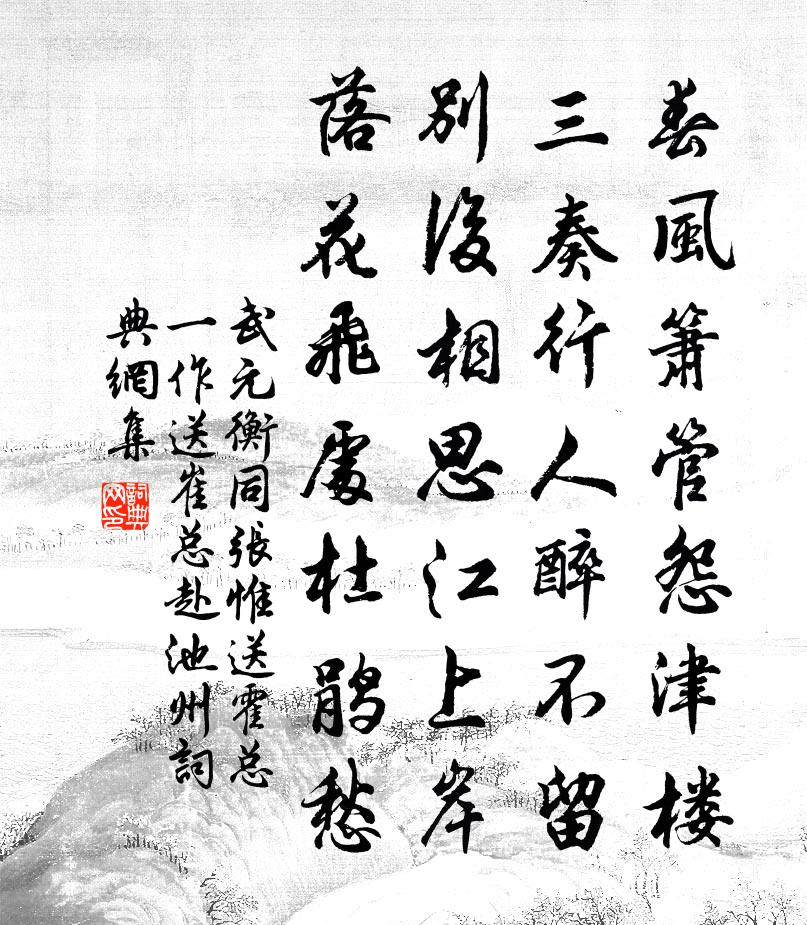 春風簫管怨津楼
三奏行人醉不留
別後相思江上岸
落花飛處杜鵑愁
武元衡同張惟送霍总
一作送崔总赴池州詞
典網集
詞典網印